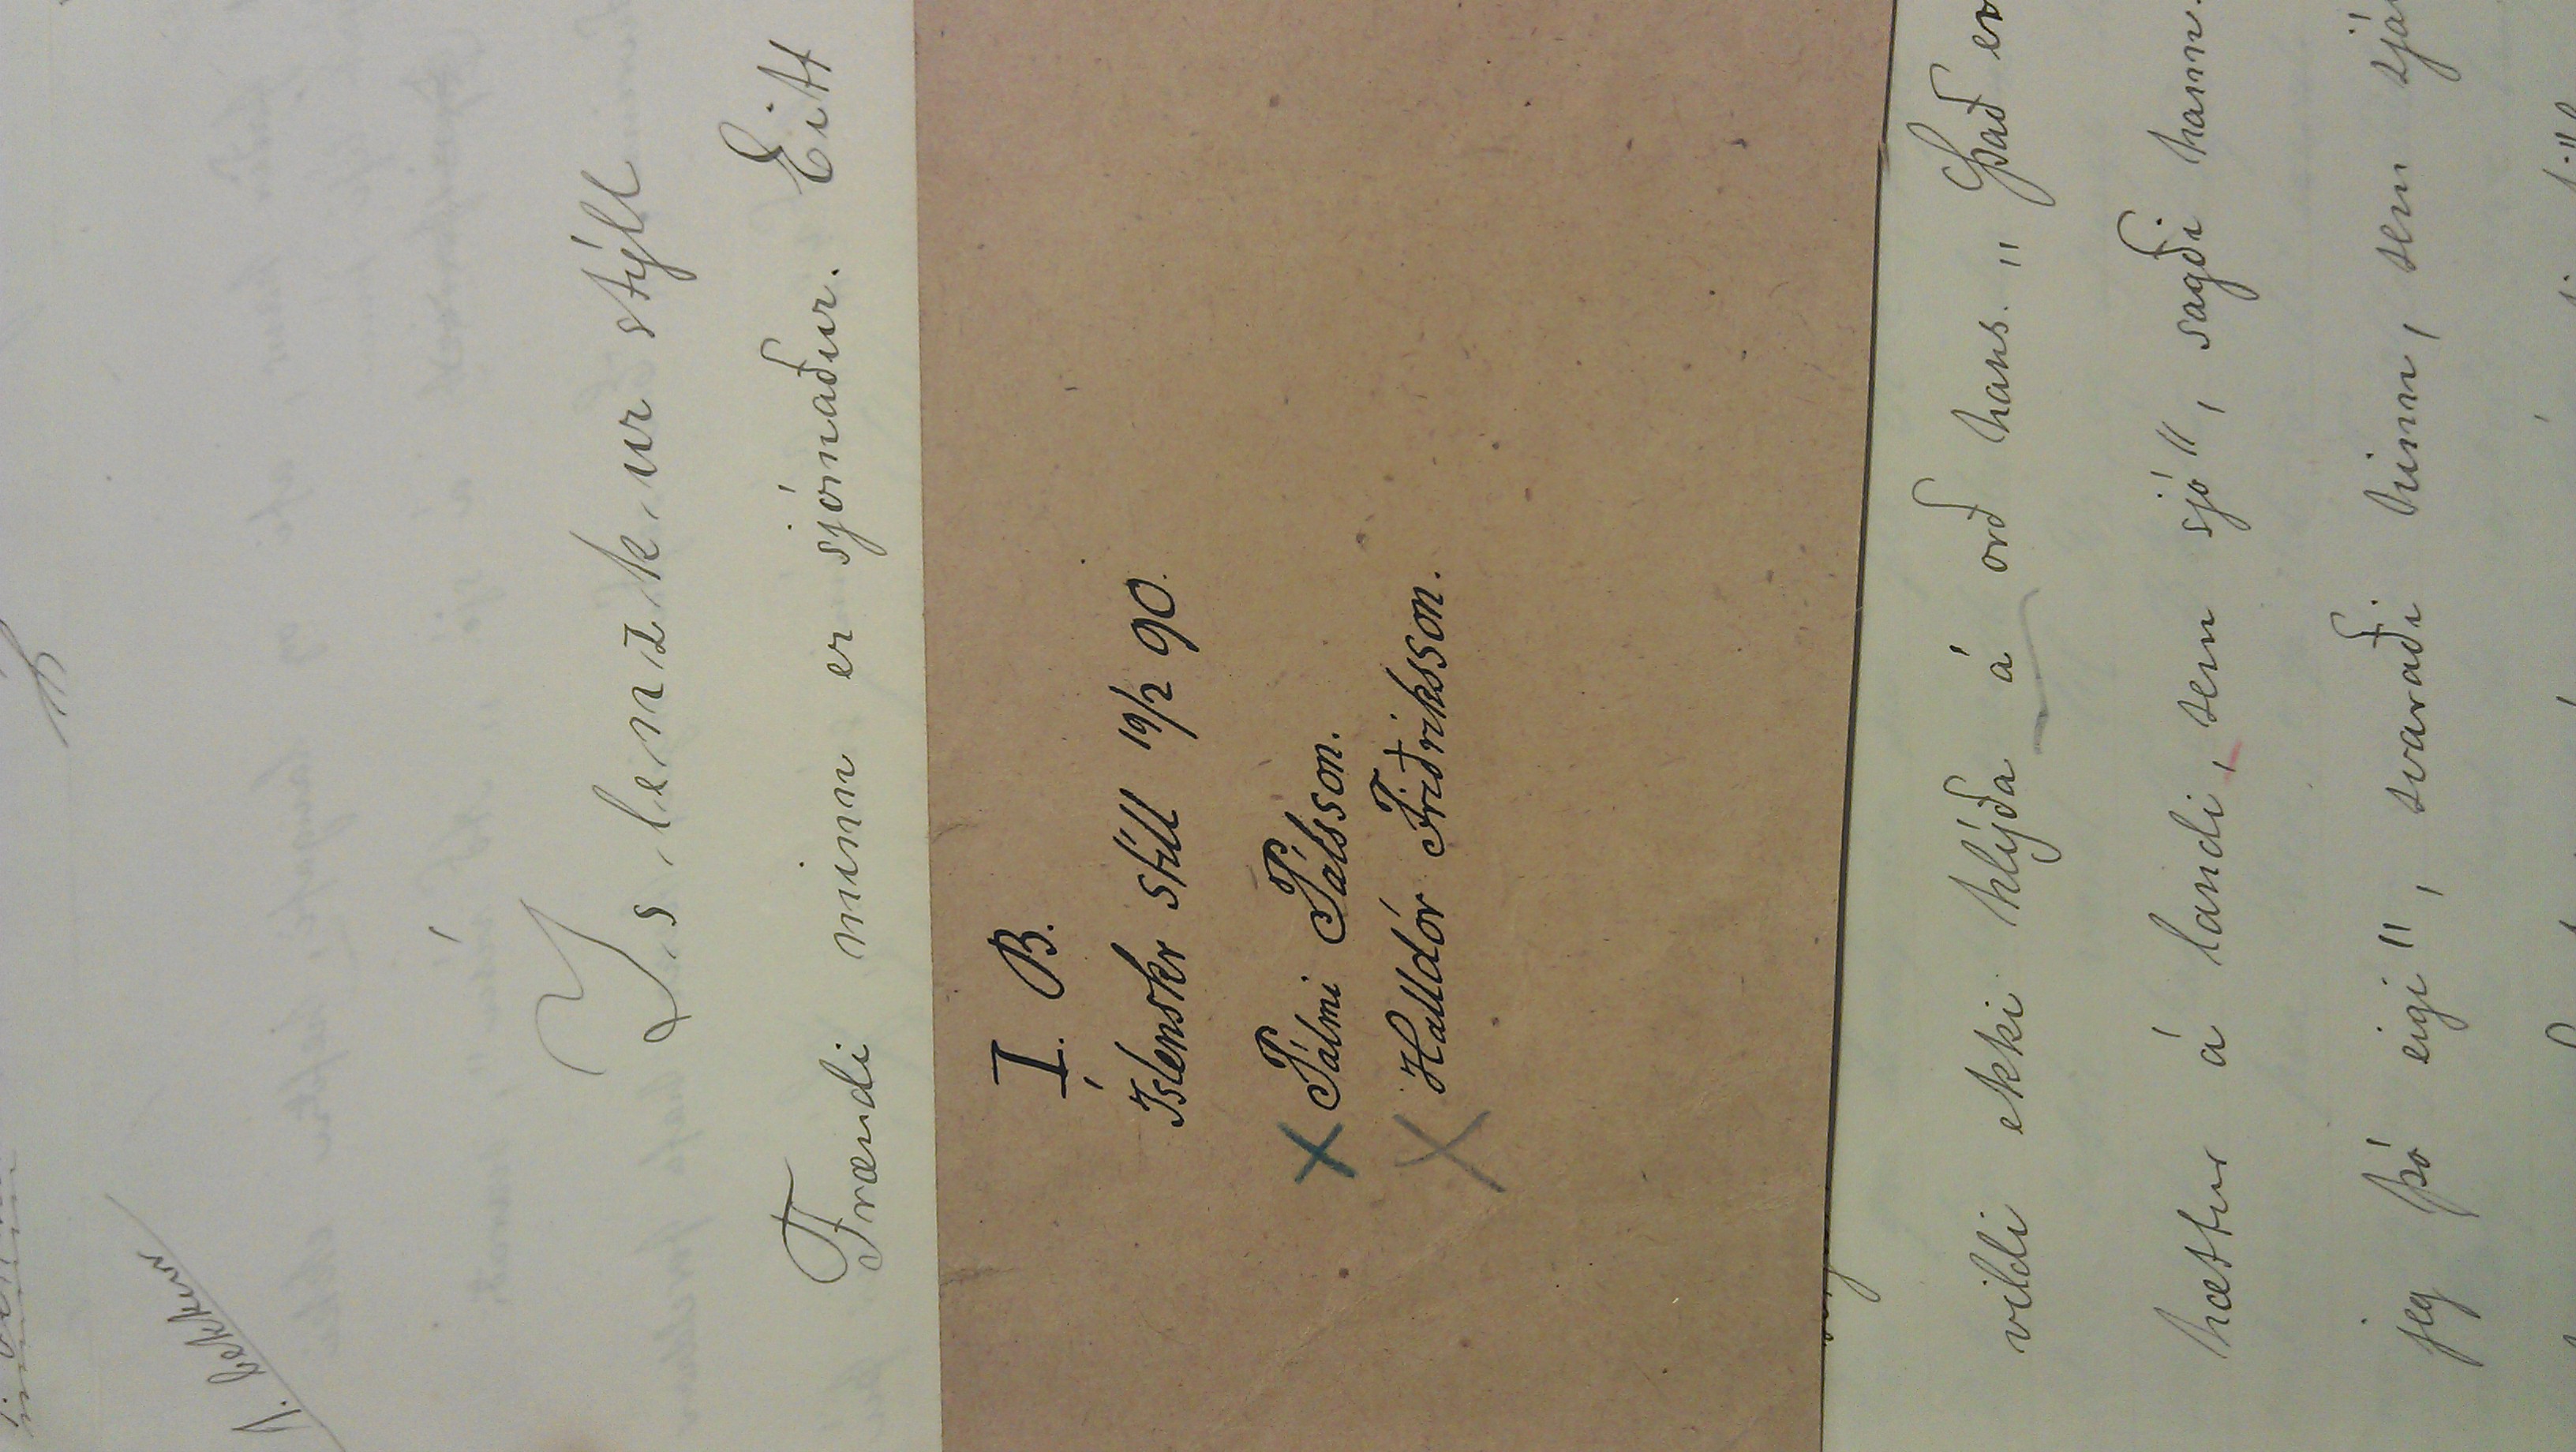 I. bekkur
Islenzkur stýll
Frændi minn er sjómaður. Eitt
I. B.
Íslenskr stíll 19/2 90.
Pálmi Pálsson.
Halldór Friðriksson.
vildi ekki hlýða á orð hans. „Það er
hættur á landi, sem sjó", sagði hann.
jeg þó eigi", svaraði hinn, sem sjá